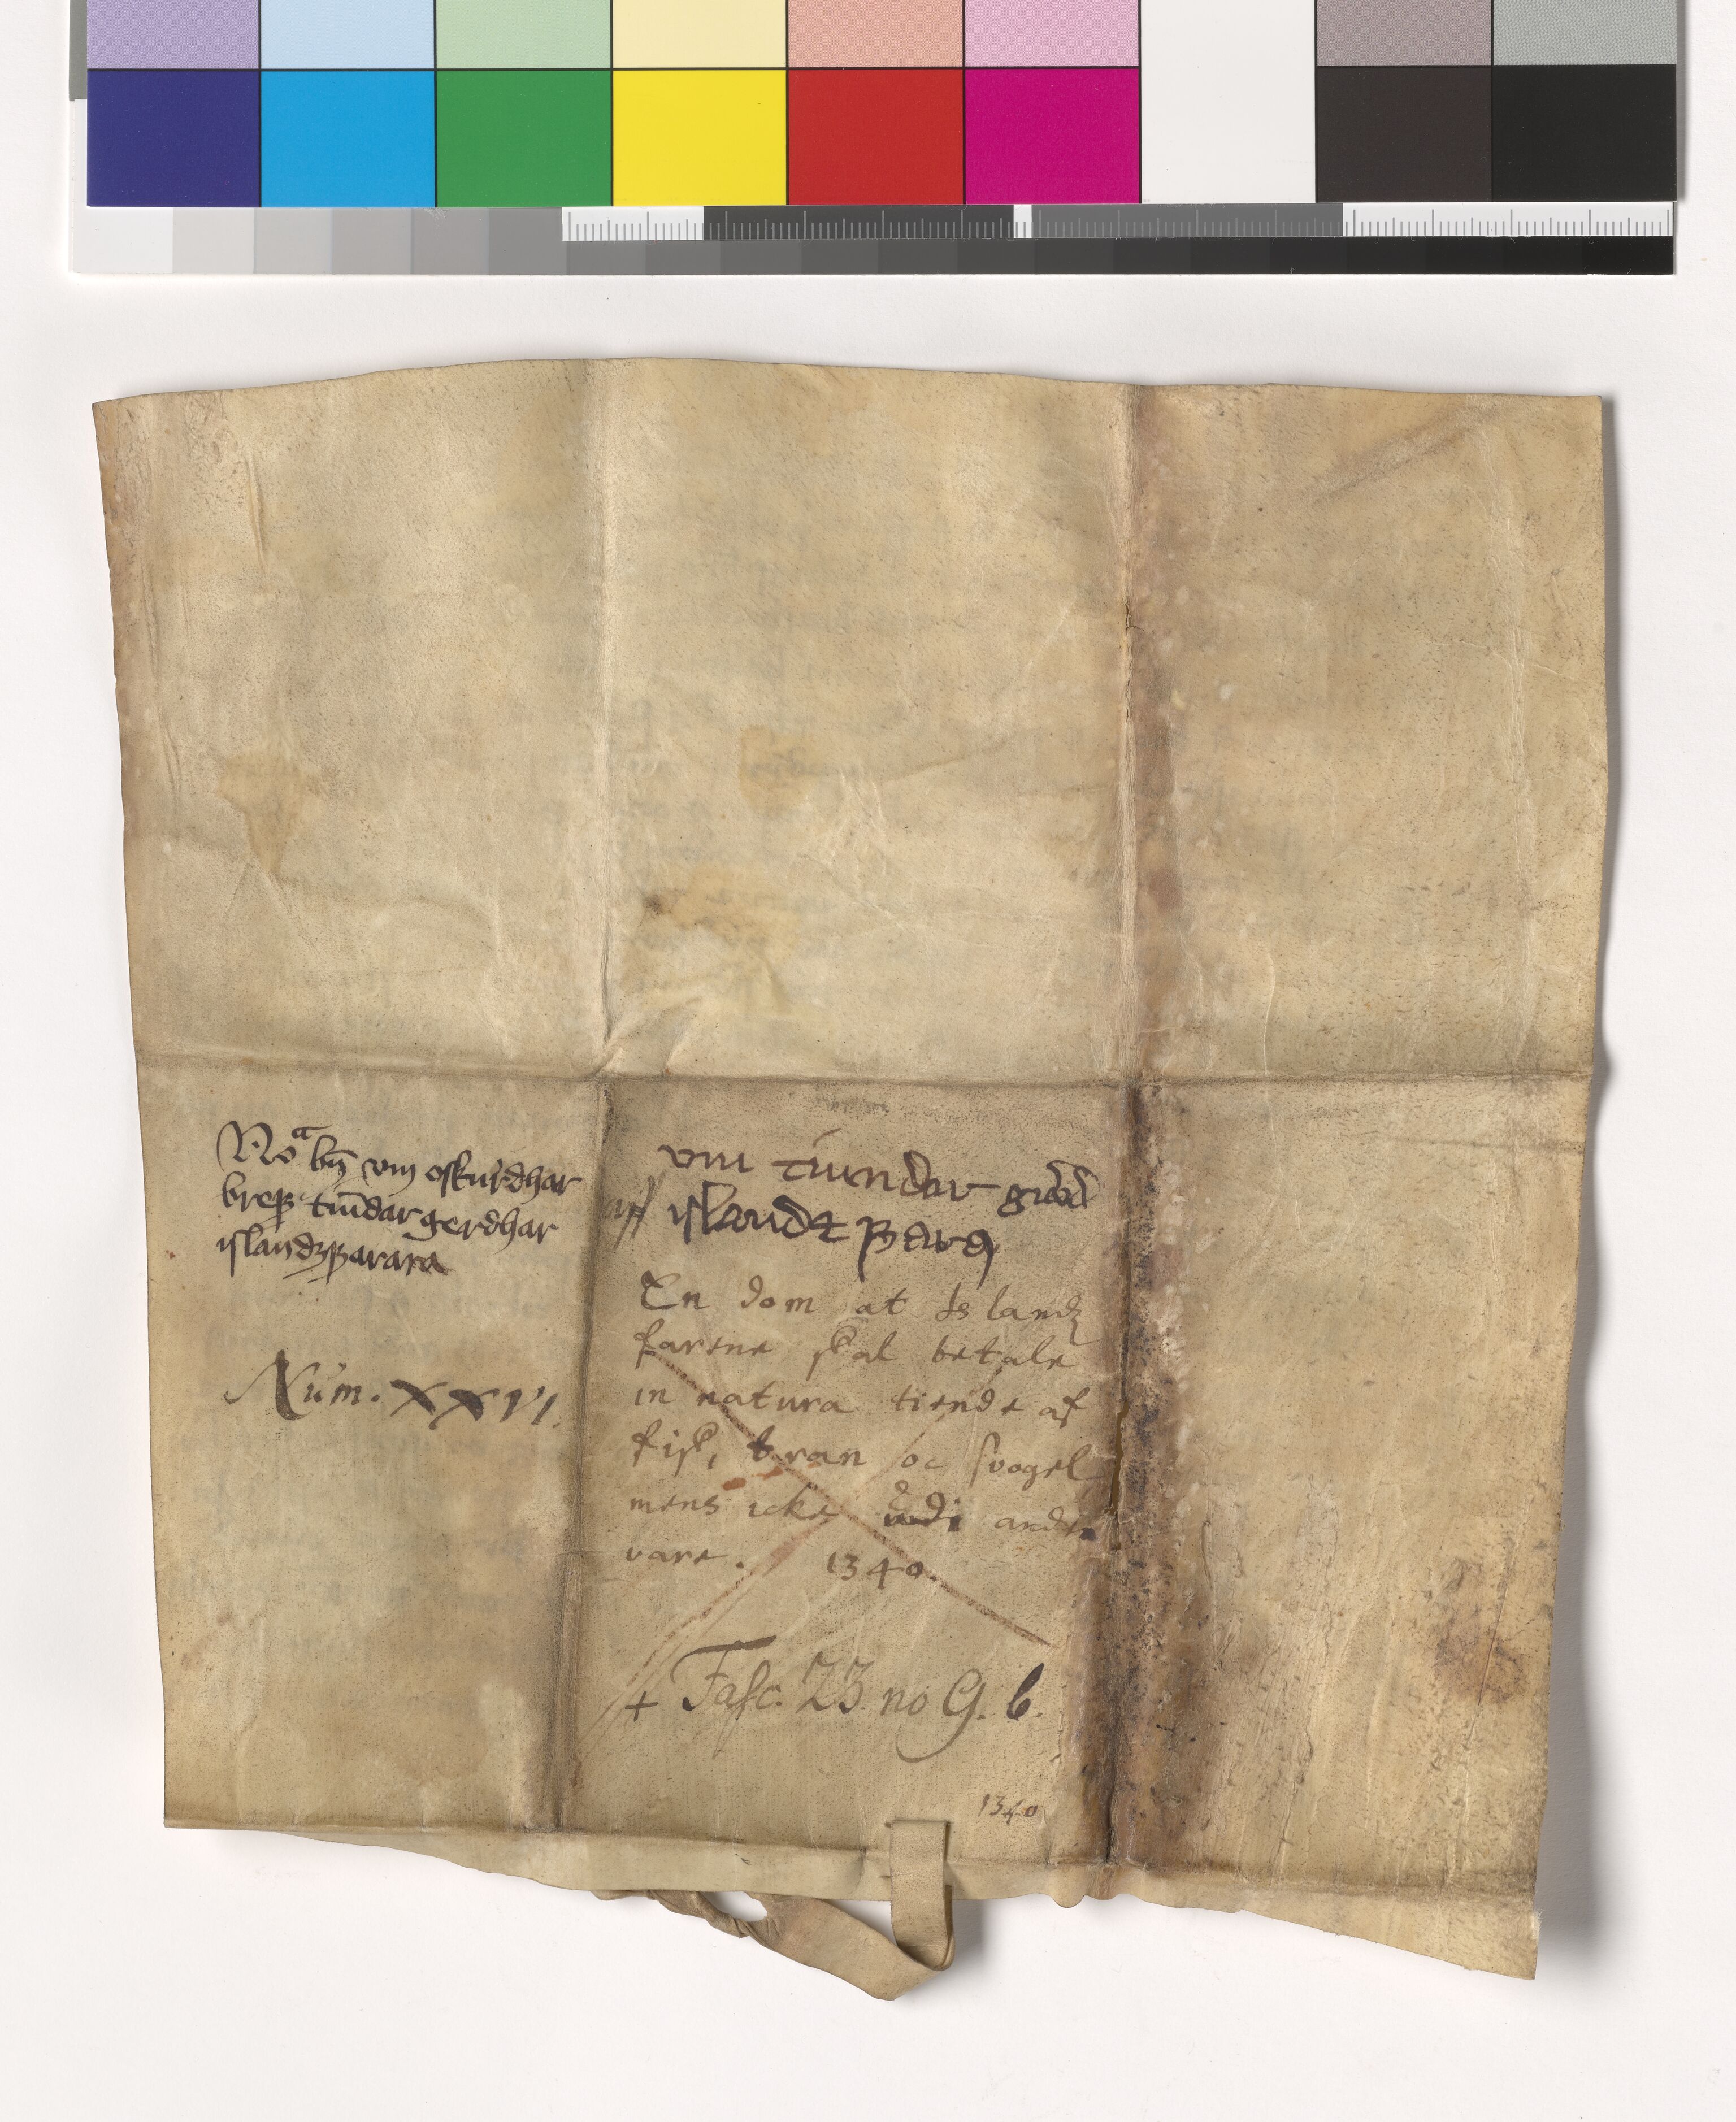 Noᵃ bꝫ vm oskurdhar
breff tiūdar gerdhar
islandzfarara
Núm. XXVI.
vm tiundar gerd
aff islandz farꝭ
En dom at Islandz
farene skal betale
in natura tiende af
fisk, tran oc svogel
mens icke udi anden
vare. 1340.
+ Fasc. 23 no G. 6.
1340